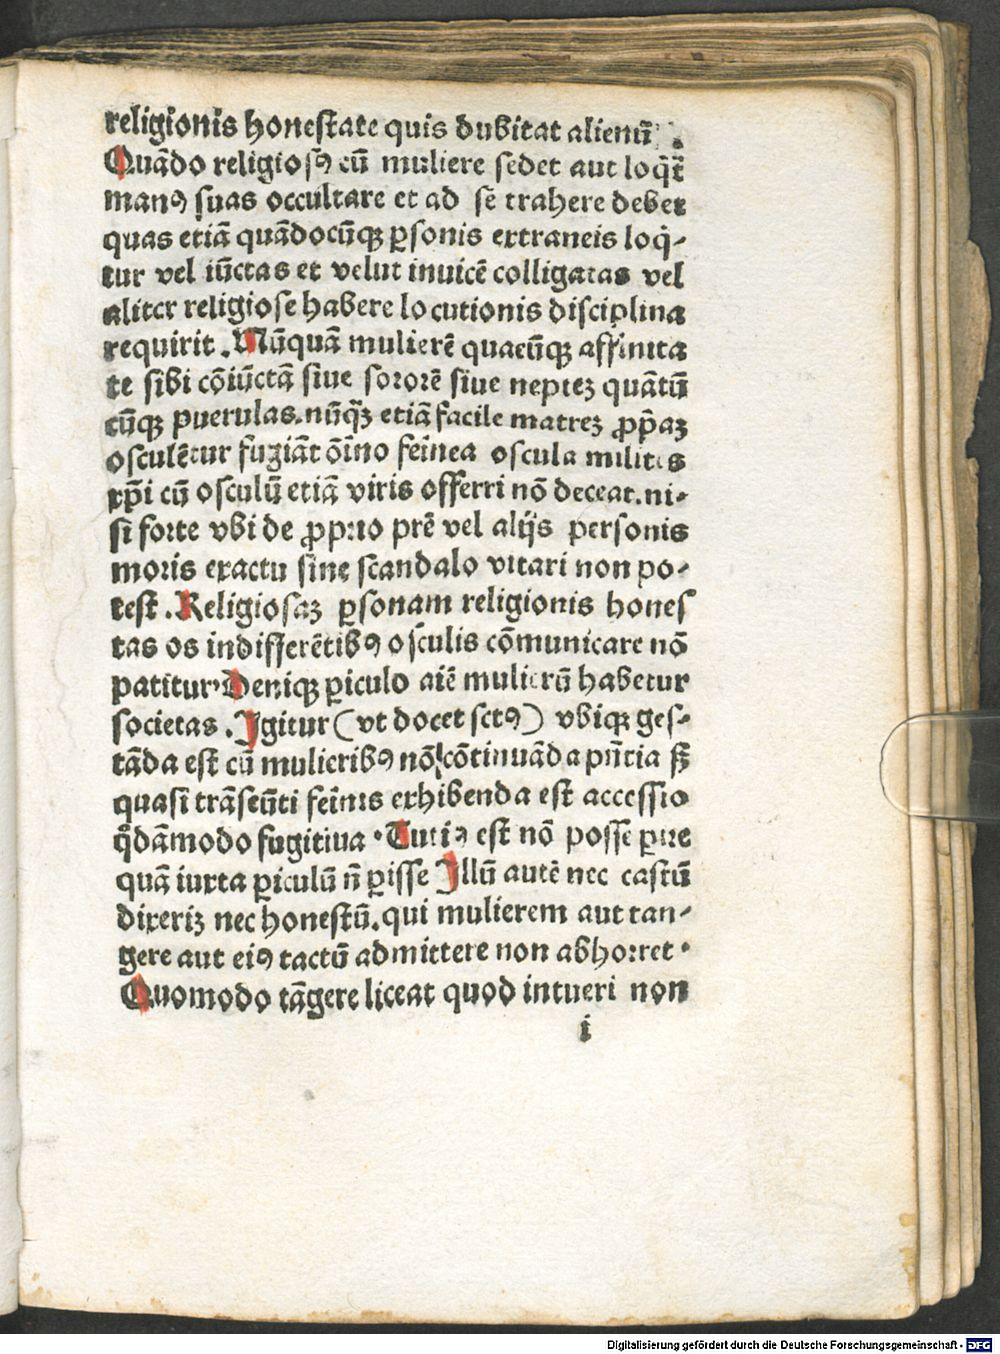 religionis honestate quis dubitat alienū .
Quādo religiosꝰ cū muliere sedet aut loqͥt̄
manꝰ suas occultare et ad sē trahere debet
quas etiā quādocūqꝫ ꝑsonis extraneis loqͥ-
tur vel iūctas et velut inuicē colligatas vel
aliter religiose habere locutionis disciplina
requirit . Nūquā mulierē quacūqꝫ affinita
te sibi cōiūctā siue sororē siue neptēꝫ quātū
cūqꝫ puerulas. nūqꝫ etiā facile matreꝫ ꝓp̄aꝫ
osculētur fugiāt ōino fēinea oscula milites
xp̄i cū osculū etiā viris offerri nō deceat. ni-
si forte vbi de ꝓprio pr̄e vel alijs personis
moris exactu sine scandalo vitari non po-
test . Religiosaꝫ ꝑsonam religionis hones
tas os indifferētibꝰ osculis cōmunicare nō
patitur. Deniqꝫ ꝑiculo aīe mulierū habetur
societas . Igitur (vt docet sctꝰ) vbiqꝫ ges-
tāda est cū mulieribꝰ nō cōtinuāda pn̄tia sꝫ
quasi trāseūti feīnis exhibenda est accessio
qͦdāmodo fugitiua . Tutiꝰ est nō posse ꝑire
quā iuxta ꝑiculū n̄ ꝑisse Illū autē nec castū
dixeriꝫ nec honestū. qui mulierem aut tan-
gere aut eiꝰ tactū admittere non abhorret .
Quomodo tāgere liceat quod intueri non
i
Digitalisierung gefördert durch die Deutsche Forschungsgemeinschaft - DFG